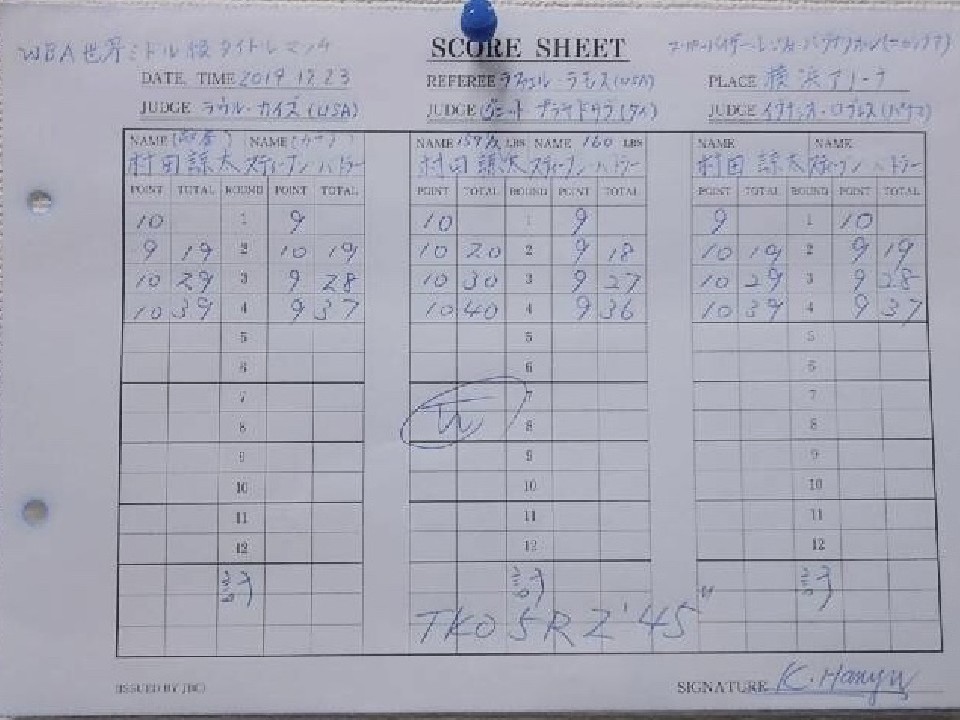 WBA世界ミドル級タイトルマッチ
SCORE SHEET
DATE, TIME 2019 12.23
REFEREE ラファエル・ラモス(USA)
PLACE 横浜アリーナ
JUDGE ラウル・カイズ(USA)
JUDGE プラヤドサブ(タイ)
JUDGE イグナシオ・ロブレス(パナマ)
NAME NAME
NAME LBS NAME 160 LBS
NAME NAME
村田諒太 スティーブン バトラー
村田諒太 スティーブン バトラー
村田諒太 スティーブン バトラー
POINT TOTAL ROUND POINT TOTAL POINT TOTAL ROUND POINT TOTAL POINT TOTAL ROUND POINT TOTAL
10 1 9 10 1 9 9 1 10
9 19 2 10 19 10 20 2 9 18 10 19 2 9 19
10 29 3 9 28 10 30 3 9 27 10 29 3 9 28
10 39 4 9 37 10 40 4 9 36 10 39 4 9 37
5 5 5
6 6 6
7 7 7
8 8 8
9 9 9
10 10 10
11 11 11
12 12 12
TKO 5R 2'45"
ISSUED BY JBC)
SIGNATURE K. Hanyu